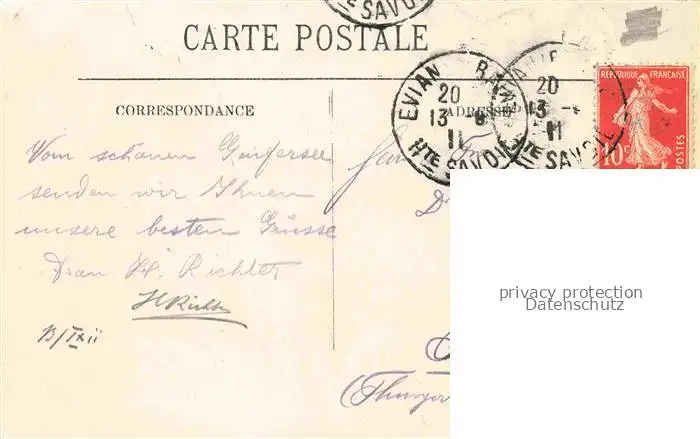 TE SAVOIE
CARTE POSTALE
EVIAN
20
13
11
HTE SAVOIE
20
13
11
TE SAVOIE
RÉPUBLIQUE FRANÇAISE
10c
POSTES
CORRESPONDANCE
ADRESSE
Vom schönen Genfersee
senden wir Ihnen
unsere besten Grüsse
Richter
HRichter
13/IX ii
privacy protection
Datenschutz